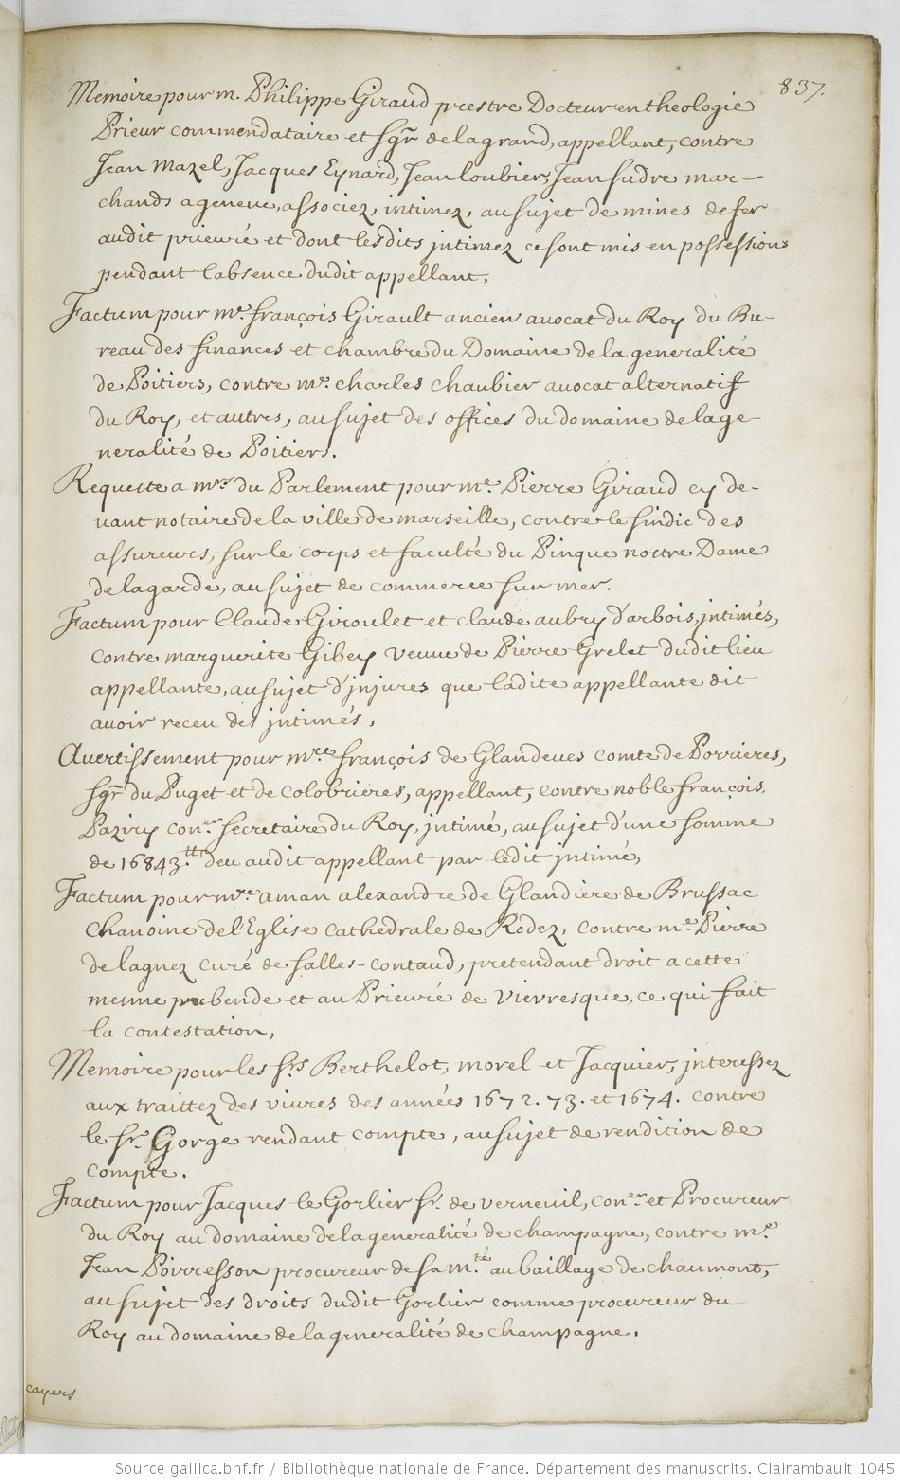 837.
Memoire pour m. Philippe Giraud prestre Docteur en theologie
Prieur commendataire et sgr de lagrand, appellant, contre
Jean Mazel, Jacques Eynard, Jean loubier, Jean sudre mar-
chands a geneve, associez, intimez, au sujet de mines de fer
audit prieuré et dont lesdits intimez ce sont mis en possession
pendant l'absence dudit appellant,
Factum pour me. françois Girault ancien avocat du Roy du Bu-
reau des finances et chambre du Domaine de la generalité
de Poitiers, contre me. charles chaubier avocat alternatif
du Roy, et autres, au sujet des offices du domaine de la ge-
neralité de Poitiers.
Requeste a mrs du Parlement pour me. Pierre Giraud cy de-
vant notaire de la ville de marseille, contre le sindic des
assureurs, sur le corps et faculté du Pinque nostre Dame
de lagarde, au sujet de commerce sur mer.
Factum pour Claude Giroulet et claude aubry d'arbois, intimés,
contre marguerite Gibey veuve de Pierre Grelet dudit lieu
appellante, au sujet d'injures que ladite appellante dit
avoir receu des intimés,
Avertissement pour mre françois de Glandeves comte de Porrieres,
sgr du Puget et de colobrieres, appellant, contre noble françois
Paziry coner secretaire du Roy, intimé, au sujet d'une somme
de 16843.tt deu audit appellant par ledit intimé,
Factum pour mre aman alexandre de Glandiere de Brussac
chanoine de l'Eglise cathedrale de Rodez, contre me Pierre
de lagnez curé de salles-contaud, pretendant droit a cette
mesme prebende et au Prieuré de vievresque, ce qui fait
la contestation,
Memoire pour les srs Berthelot, morel et Jacquier, interessez
aux traittez des vivres des années 1672. 73. et 1674. contre
le sr. Gorge rendant compte, au sujet de rendition de
compte.
Factum pour Jacques le Gorlier sr. de verneuil, coner et Procureur
du Roy au domaine de la generalité de champagne, contre me
Jean Poirresson procureur de sa m.té au baillage de chaumont,
au sujet des droits dudit Gorlier comme procureur du
Roy au domaine de la generalité de champagne.
Source gallica.bnf.fr / Bibliothèque nationale de France. Département des manuscrits. Clairambault 1045